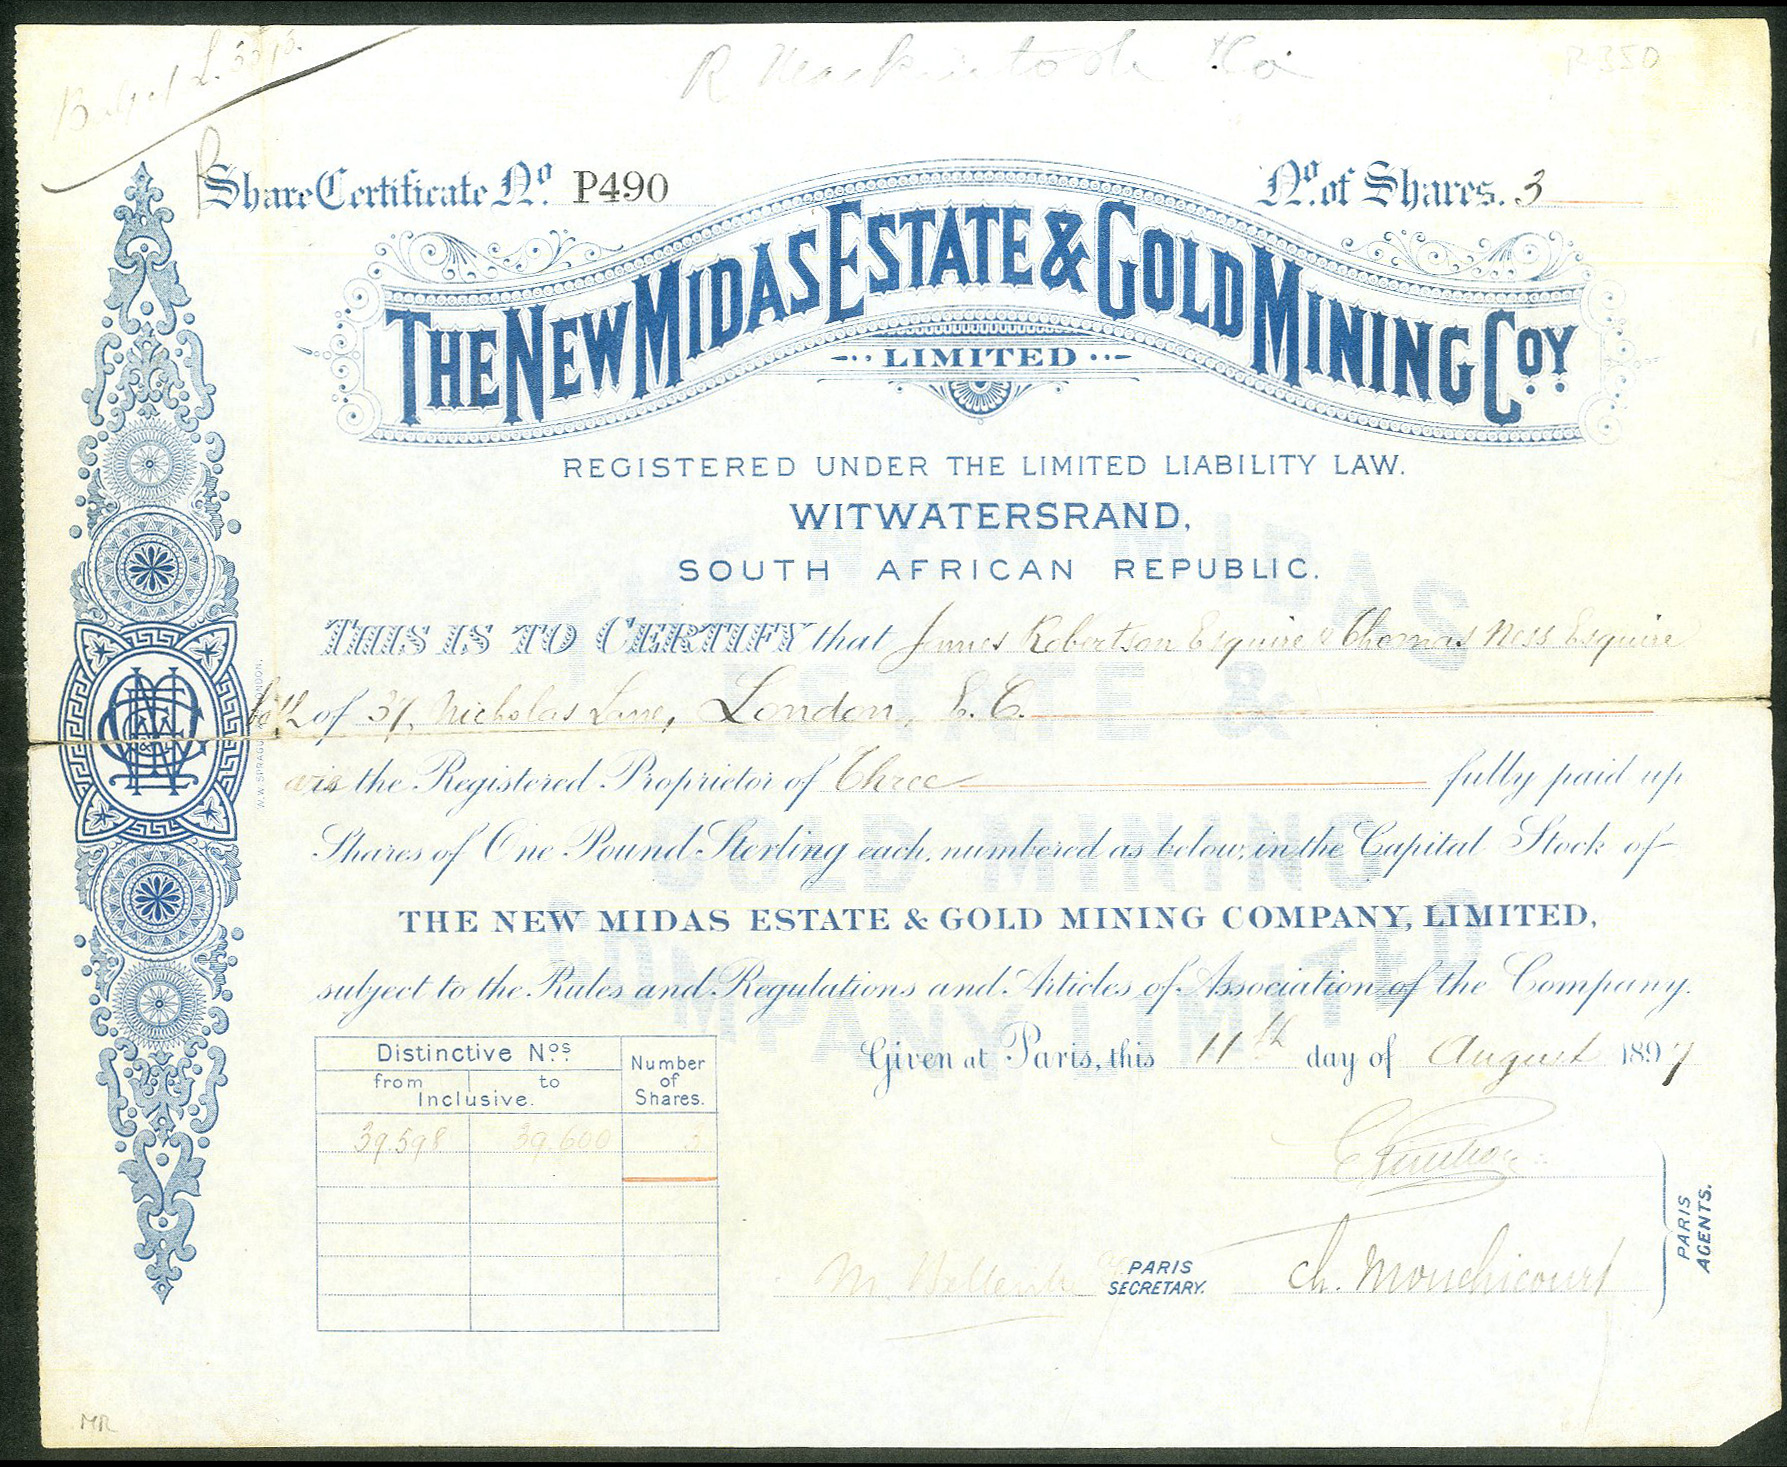 R Mackintosh & Co
R 350
Share Certificate No. P490
No. of Shares. 3
THE NEW MIDAS ESTATE & GOLD MINING COY
LIMITED
REGISTERED UNDER THE LIMITED LIABILITY LAW.
WITWATERSRAND,
SOUTH AFRICAN REPUBLIC.
THIS IS TO CERTIFY that James Robertson Esquire & Thomas Ness Esquire
both of 37, Nicholas Lane, London, E.C.
are the Registered Proprietor of Three fully paid up
Shares of One Pound Sterling each, numbered as below, in the Capital Stock of
THE NEW MIDAS ESTATE & GOLD MINING COMPANY, LIMITED,
subject to the Rules and Regulations and Articles of Association of the Company.
Given at Paris, this 11th day of August 1897
Distinctive Nos. Number of Shares.
from to
Inclusive.
39.598 39.600 3
PARIS SECRETARY.
Ch. Mouchicourt
PARIS AGENTS.
MR